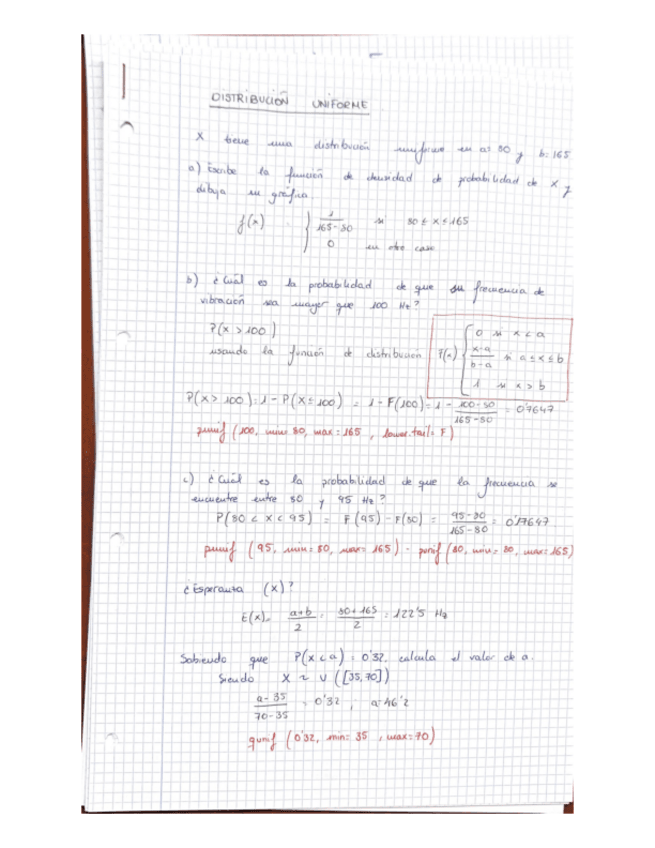 DISTRIBUCIÓN UNIFORME
X tiene una distribución uniforme en a= 80 y b= 165
a) Escribe la función de densidad de probabilidad de X y
dibuja su gráfica.
f(x) { 1/(165-80) si 80 ≤ x ≤ 165
0 en otro caso
b) ¿Cuál es la probabilidad de que su frecuencia de
vibración sea mayor que 100 Hz?
P(x > 100)
usando la función de distribución F(x) { 0 si x < a
(x-a)/(b-a) si a ≤ x ≤ b
1 si x > b
P(x > 100) = 1 - P(x ≤ 100) = 1 - F(100) = 1 - (100-80)/(165-80) = 0'7647
punif (100, min= 80, max = 165, lower.tail= F)
c) ¿Cuál es la probabilidad de que la frecuencia se
encuentre entre 80 y 95 Hz?
P(80 < x < 95) = F(95) - F(80) = (95-80)/(165-80) = 0'17647
punif (95, min= 80, max= 165) - punif (80, min= 80, max= 165)
¿Esperanza (x)?
E(x)= (a+b)/2 = (80+165)/2 = 122'5 Hz
Sabiendo que P(x < a) = 0'32, calcula el valor de a.
Siendo X ~ U ([35,70])
(a-35)/(70-35) = 0'32, a=46'2
qunif (0'32, min= 35, max= 70)